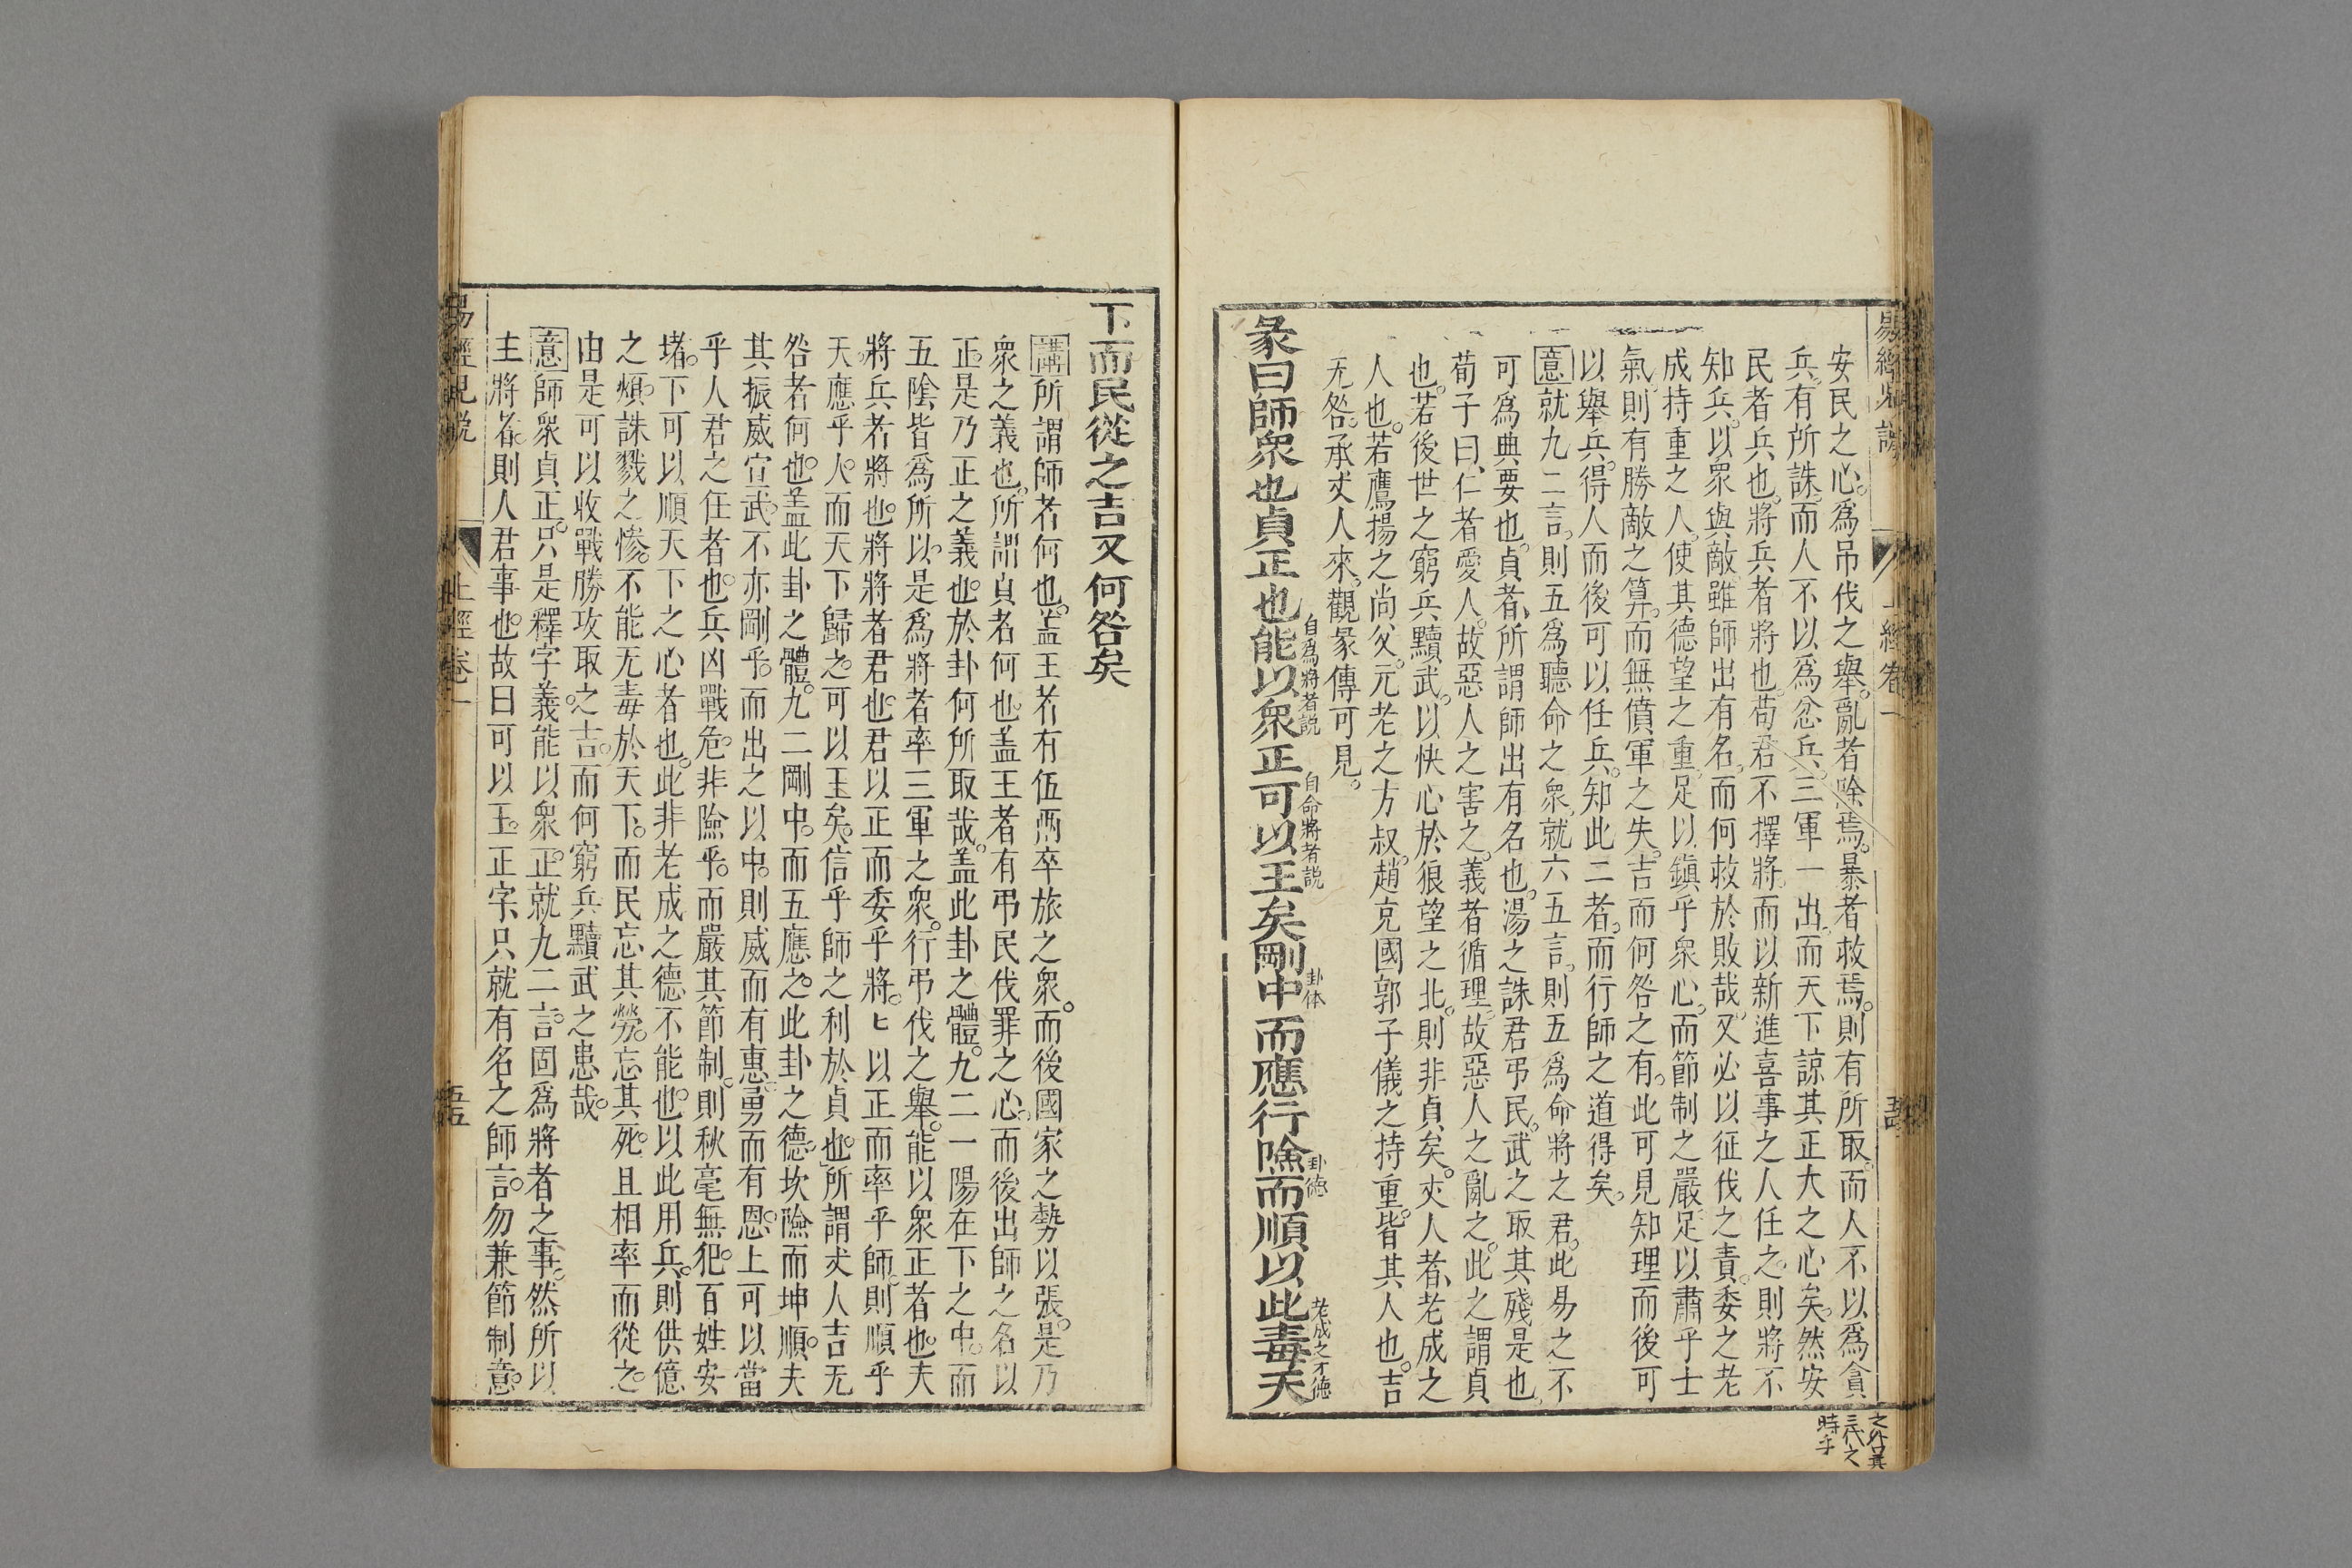 安民之心。爲吊伐之舉。亂者除焉。暴者救焉。則有所取。而人不以爲貪
兵。有所誅。而人不以爲忿兵。三軍一出。而天下諒其正大之心矣。然安
民者兵也。將兵者將也。苟君不擇將。而以新進喜事之人任之。則將不
知兵。以衆與敵。雖師出有名。而何救於敗哉。又必以征伐之責。委之老
成持重之人。使其德望之重。足以鎮乎衆心。而節制之嚴。足以肅乎士
氣。則有勝敵之算。而無僨軍之失。吉而何咎之有。此可見知理而後可
以舉兵。得人而後可以任兵。知此二者。而行師之道得矣。
意就九二言。則五爲聽命之衆。就六五言。則五爲命將之君。此易之不
可爲典要也。貞者、所謂師出有名也。湯之誅君弔民。武之取其殘是也。
荀子曰、仁者愛人。故惡人之害之。義者循理。故惡人之亂之。此之謂貞
也。若後世之窮兵黷武。以快心於狼望之北。則非貞矣。丈人者、老成之
人也。若鷹揚之尚父。元老之方叔。趙克國郭子儀之持重。皆其人也。吉
无咎。承丈人來。觀彖傳可見。
彖曰師衆也貞正也能以衆正可以王矣剛中而應行險而順以此毒天
自爲將者説
自命將者説
卦体
卦德
老成之才德
之外其
三代之
時乎
易經
上經卷一
下而民從之吉又何咎矣
講所謂師者何也。盖王者有伍兩卒旅之衆。而後國家之勢以張。是乃
衆之義也。所謂貞者何也。盖王者有弔民伐罪之心。而後出師之名以
正。是乃正之義也。於卦何所取哉。盖此卦之體。九二一陽在下之中。而
五陰皆爲所以。是爲將者率三軍之衆。行弔伐之舉。能以衆正者也。夫
將兵者將也。將將者君也。君以正而委乎將。匕以正而率乎師。則順乎
天。應乎人。而天下歸之。可以王矣。信乎師之利於貞也。所謂丈人吉无
咎者何也。盖此卦之體。九二剛中。而五應之。此卦之德。坎險而坤順。夫
其振威宣武。不亦剛乎。而出之以中。則威而有惠。勇而有恩。上可以當
乎人君之任者也。兵凶戰危。非險乎。而嚴其節制。則秋毫無犯。百姓安
堵。下可以順天下之心者也。此非老成之德不能也。以此用兵。則供億
之煩。誅戮之慘。不能无毒於天下。而民忘其勞。忘其死。且相率而從之。
由是可以收戰勝攻取之吉。而何窮兵黷武之患哉。
意師衆貞正。只是釋字義。能以衆正。就九二言。固爲將者之事。然所以
主將者。則人君事也。故曰可以王。正字、只就有名之師言。勿兼節制意。
易經兒説
上經卷一
五五